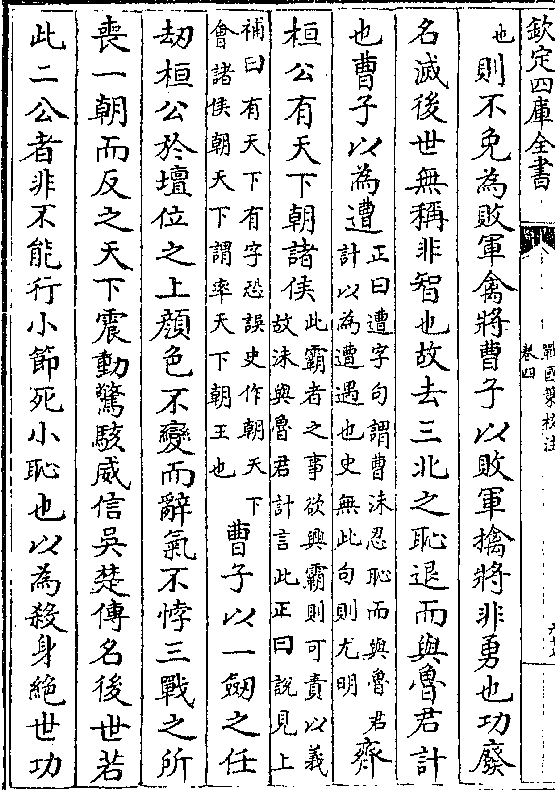 欽定四庫全書
戰國策校注
卷四
也則不免為敗軍禽將曹子以敗軍擒將非勇也功廢
名滅後世無稱非智也故去三北之恥退而與魯君計
也曹子以為遭正曰遭字句謂曹沫忍恥而與魯君計以為遭遇也史無此句則尤明齊
桓公有天下朝諸侯此霸者之事欲興霸則可責以義故沫與魯君計言此正曰說見上
補曰有天下有字恐誤史作朝天下會諸侯朝天下謂率天下朝王也曹子以一劔之任
劫桓公於壇位之上顔色不變而辭氣不悖三戰之所
喪一朝而反之天下震動驚駭威信吳楚傳名後世若
此二公者非不能行小節死小恥也以為殺身絶世功